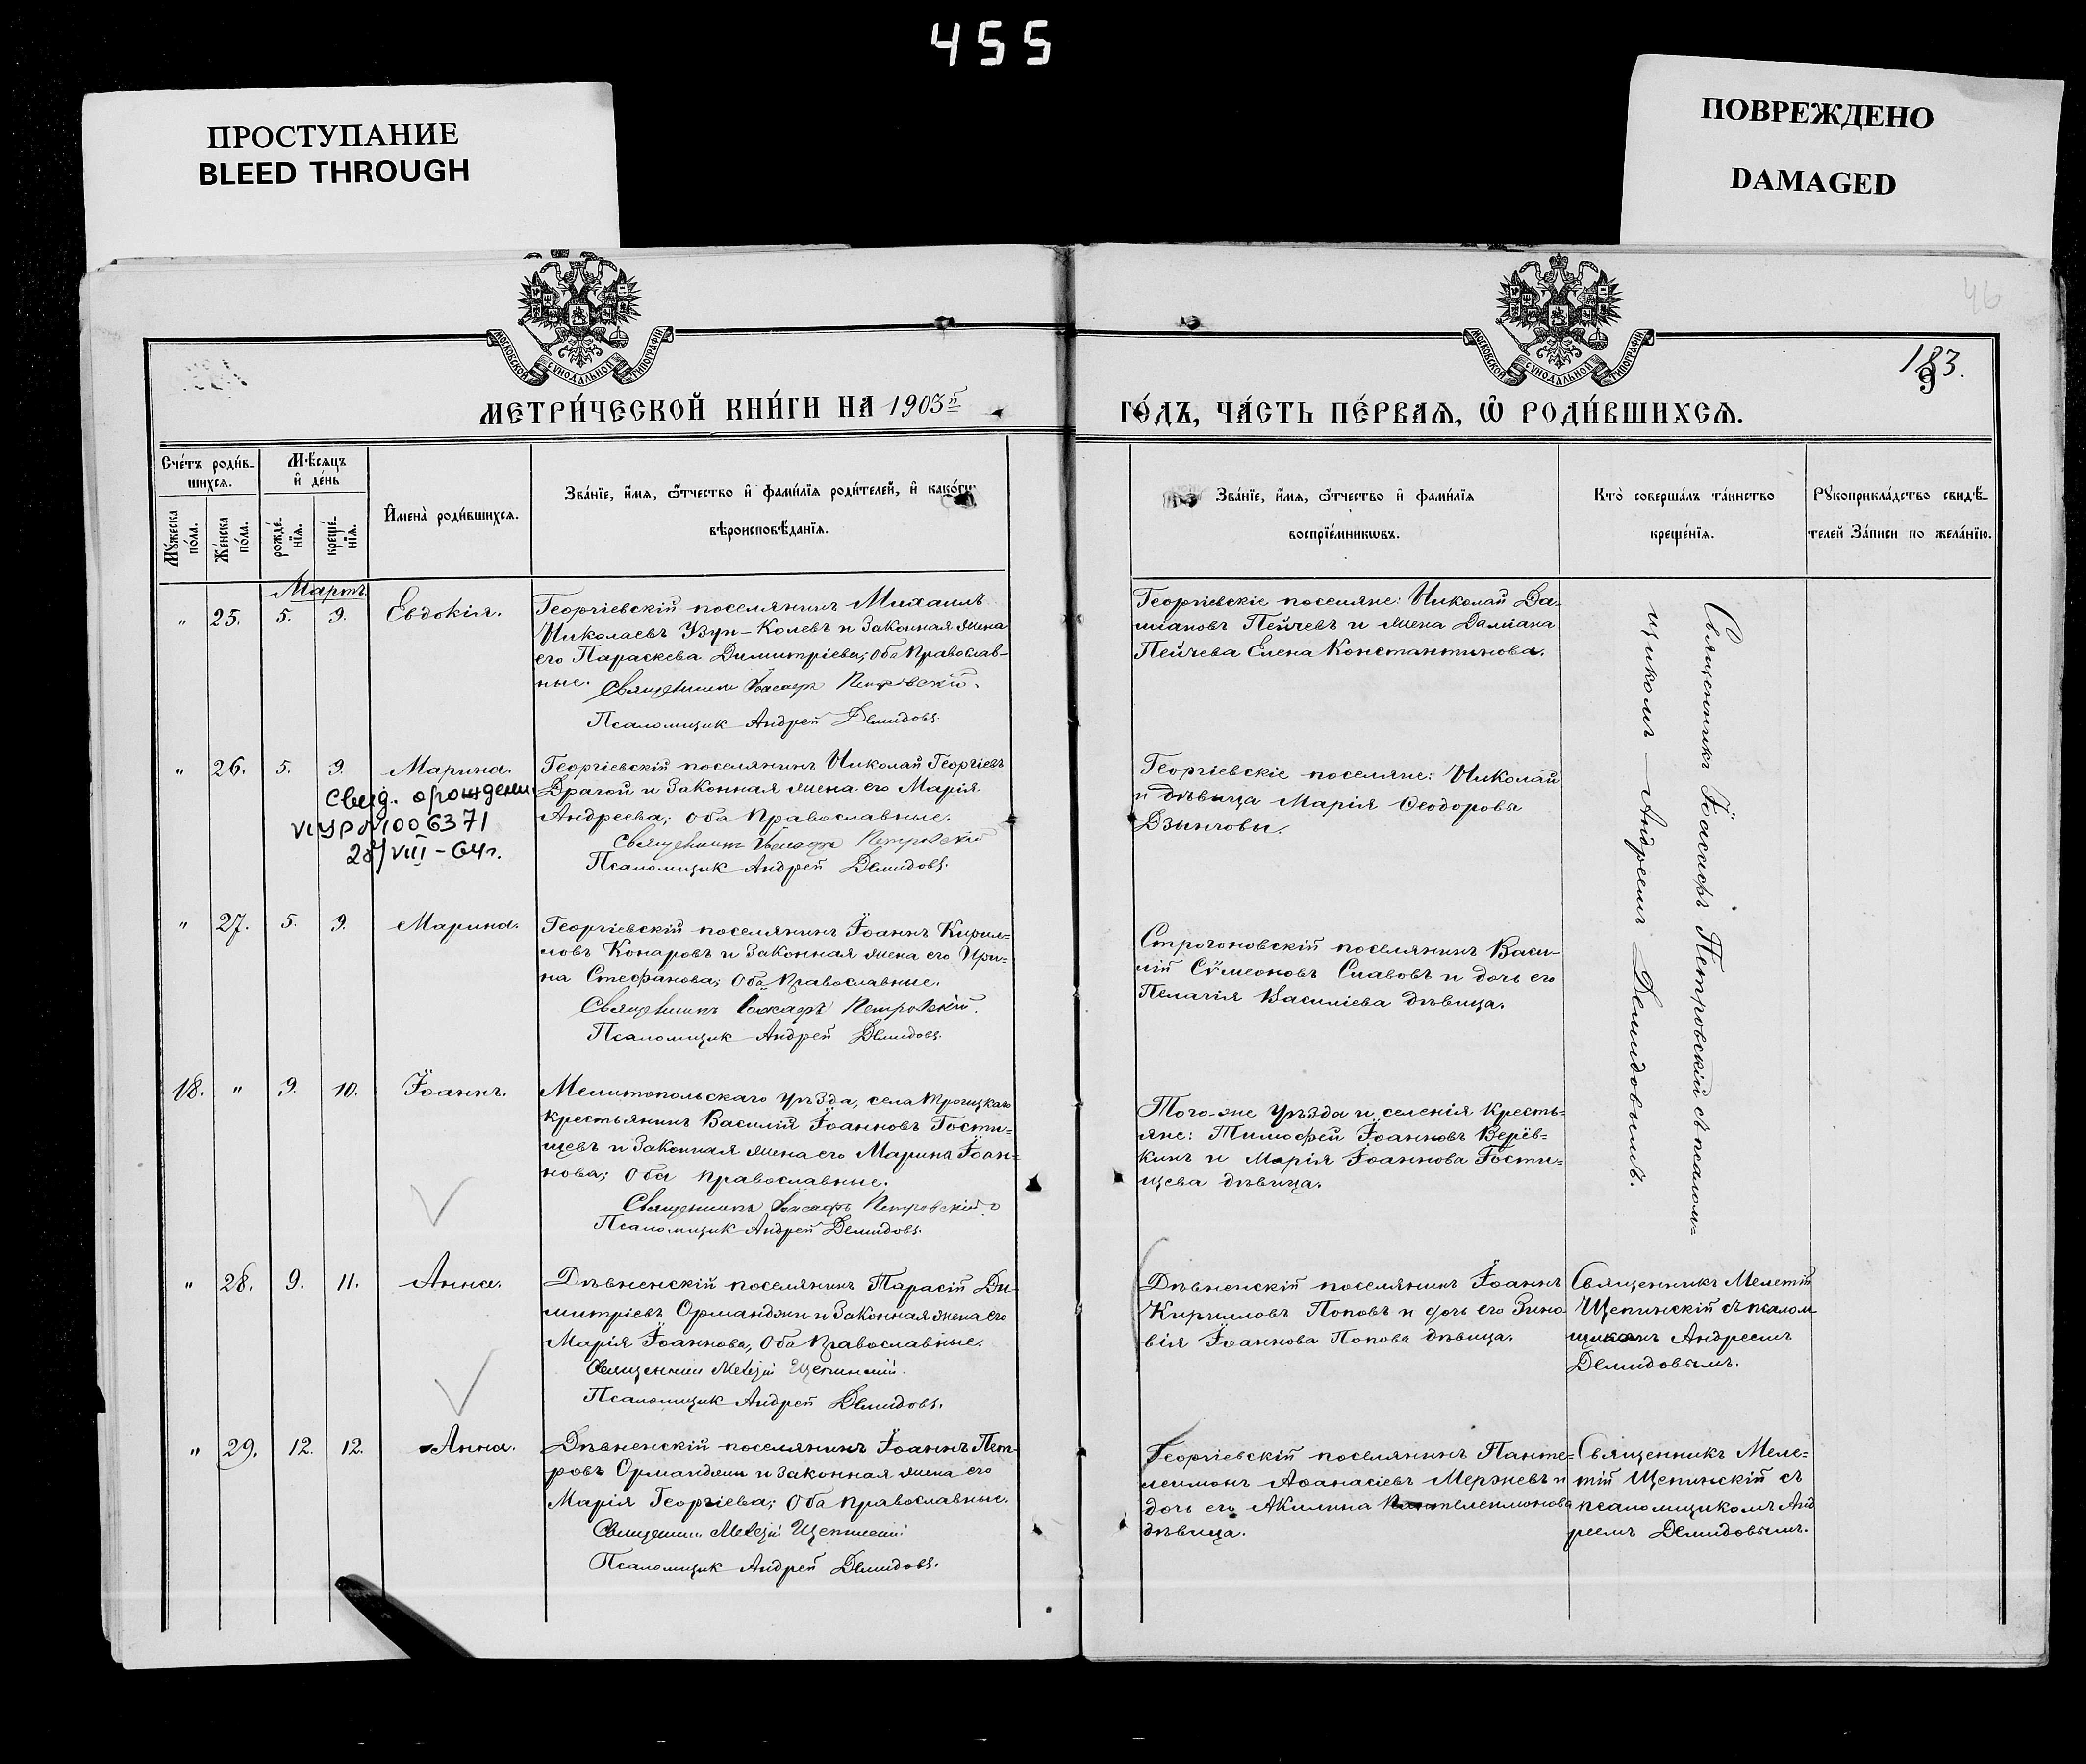 455
ПРОСТУПАНИЕ
BLEED THROUGH
ПОВРЕЖДЕНО
DAMAGED
46
МОСКОВСКОЙ СУНОДАЛЬНОЙ ТИПОГРАФІИ
МОСКОВСКОЙ СУНОДАЛЬНОЙ ТИПОГРАФІИ
183.
9
МЕТРИ́ЧЕСКОЙ КНИ́ГИ НА 1903й
ГО́ДЪ, ЧА́СТЬ ПЕ́РВАѦ, Ѽ РОДИ́ВШИХСѦ.
Сче́тъ роди́в-
шихся.
Мѣ́сяцъ
и҆ де́нь
Му́жеска
по́ла.
Же́нска
по́ла.
рожде́-
нїя.
креще́-
нїя.
И҆мена̀ роди́вшихся.
Зва́нїе, и҆́мя, ѻ҆́тчество и҆ фами́лїя роди́телей, и҆ како́гѡ
вѣроисповѣ́данїя.
Зва́нїе, и҆́мя, ѻ҆́тчество и҆ фами́лїя
воспрїе́мникѡвъ.
Кто̀ соверша́лъ та́инство
креще́нїя.
Рꙋкоприкла́дство свидѣ́-
телей За́писи по жела́нїю.
Мартъ
" 25. 5. 9. Евдокія.
Георгіевскій поселянинъ Михаилъ
Николаевъ Узун-Колевъ и законная жена
его Параскева Димитріева; оба православ-
ные. Священникъ Іоасафъ Петровскій.
Псаломщик Андрей Демидовъ.
Георгіевскіе поселяне: Николай Да-
міановъ Пейчевъ и жена Даміана
Пейчева Елена Константинова.
Священникъ Іоасафъ Петровскій съ псалом=
щикомъ Андреемъ Демидовымъ.
" 26. 5. 9. Марина.
Свид. о рождени
VI УР №1006371
28/VIII-64г.
Георгіевскій поселянинъ Николай Георгіевъ
Драгой и законная жена его Марія
Андреева; оба православные.
Священникъ Іоасафъ Петровскій
Псаломщик Андрей Демидовъ.
Георгіевскіе поселяне: Николай
и дѣвица Марія Ѳеодоровы
Дзынговы.
" 27. 5. 9. Марина.
Георгіевскій поселянинъ Іоаннъ Кирил=
ловъ Конаровъ и законная жена его Ири=
на Стефанова; оба православные.
Священникъ Іоасафъ Петровскій.
Псаломщик Андрей Демидовъ.
Строгоновскій поселянинъ Васи-
лій Сѵмеоновъ Славовъ и дочь его
Пелагія Василіева дѣвица.
18. " 9. 10. Іоаннъ.
Мелитопольскаго уѣзда, села Троицкаго
крестьянинъ Василій Іоанновъ Гости=
щевъ и законная жена его Марина Іоан=
нова; оба православные.
Священникъ Іоасафъ Петровскій.
Псаломщик Андрей Демидовъ.
Того-же уѣзда и селенія кресть=
яне: Тимофей Іоанновъ Верёв=
кинъ и Марія Іоаннова Гости=
щева дѣвица.
" 28. 9. 11. Анна.
Дѣвненскій поселянинъ Тарасій Ди-
митріевъ Орманджи и законная жена его
Марія Іоаннова, оба православные.
Священникъ Мелетій Щепинскій.
Псаломщик Андрей Демидовъ.
Дѣвненскій поселянинъ Іоаннъ
Кирилловъ Поповъ и дочь его Зино
вія Іоаннова Попова дѣвица.
Священникъ Мелетій
Щепинскій съ псалом
щикомъ Андреемъ
Демидовымъ.
" 29. 12. 12. Анна.
Дѣвненскій поселянинъ Іоаннъ Пет-
ровъ Орманджи и законная жена его
Марія Георгіева; оба православные.
Священникъ Мелетій Щепинскій
Псаломщик Андрей Демидовъ.
Георгіевскій поселянинъ Панте=
леимонъ Аѳанасіевъ Мержевъ и
дочь его Акилина Пантелеимонова
дѣвица.
Священникъ Меле=
тій Щепинскій съ
псаломщикомъ Анд
реемъ Демидовымъ.